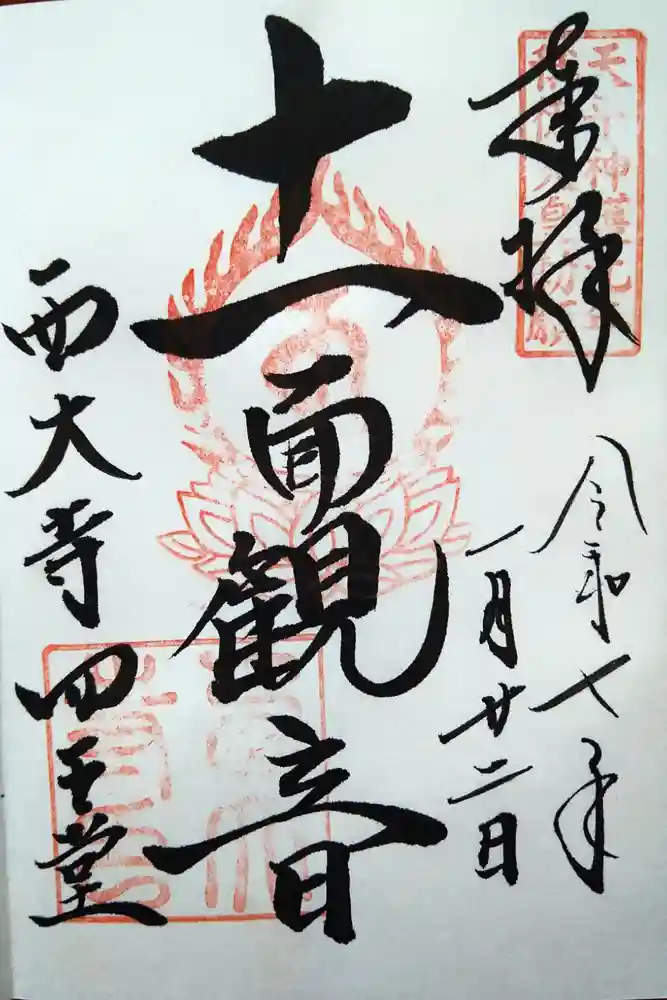 奉拝
天平神護元年
令和七年
一月廿二日
十一面觀音
西大寺四王堂